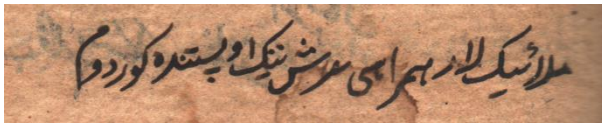 ملائیک لار ہمراہی عرش نینک اوستنده کوردوم